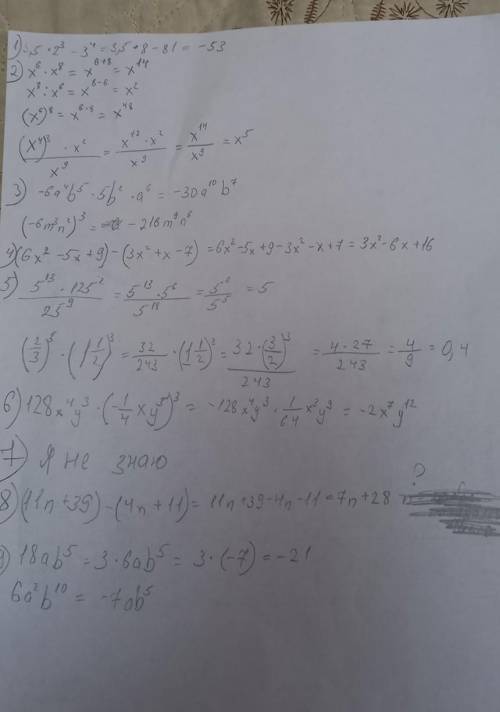 1) 3,5 · 2³ - 3⁴ = 3,5 + 8 - 81 = -53
2) x⁶ · x⁸ = x⁶⁺⁸ = x¹⁴
x⁸ : x⁶ = x⁸⁻⁶ = x²
(x⁶)⁸ = x⁶·⁸ = x⁴⁸
(x⁴)³ · x² / x⁹ = x¹² · x² / x⁹ = x¹⁴ / x⁹ = x⁵
3) -6a⁴b⁵ · 5b² · a⁶ = -30a¹⁰b⁷
(-6m³n²)³ = -216m⁹n⁶
4) (6x² - 5x + 9) - (3x² + x - 7) = 6x² - 5x + 9 - 3x² - x + 7 = 3x² - 6x + 16
5) 5¹³ · 125² / 25⁹ = 5¹³ · 5⁶ / 5¹⁸ = 5⁶ / 5⁵ = 5
(2/3)⁵ · (1 1/2)³ = 32/243 · (1 1/2)³ = 32 · (3/2)³ / 243 = 4 · 27 / 243 = 4/9 = 0,4
6) 128x⁴y³ · (-1/4 xy³)³ = -128x⁴y³ · 1/64 x³y⁹ = -2x⁷y¹²
7) Я не знаю
8) (11n + 39) - (4n + 11) = 11n + 39 - 4n - 11 = 7n + 28 ?
9) 18ab⁵ = 3 · 6ab⁵ = 3 · (-7) = -21
6a²b¹⁰ = -7ab⁵